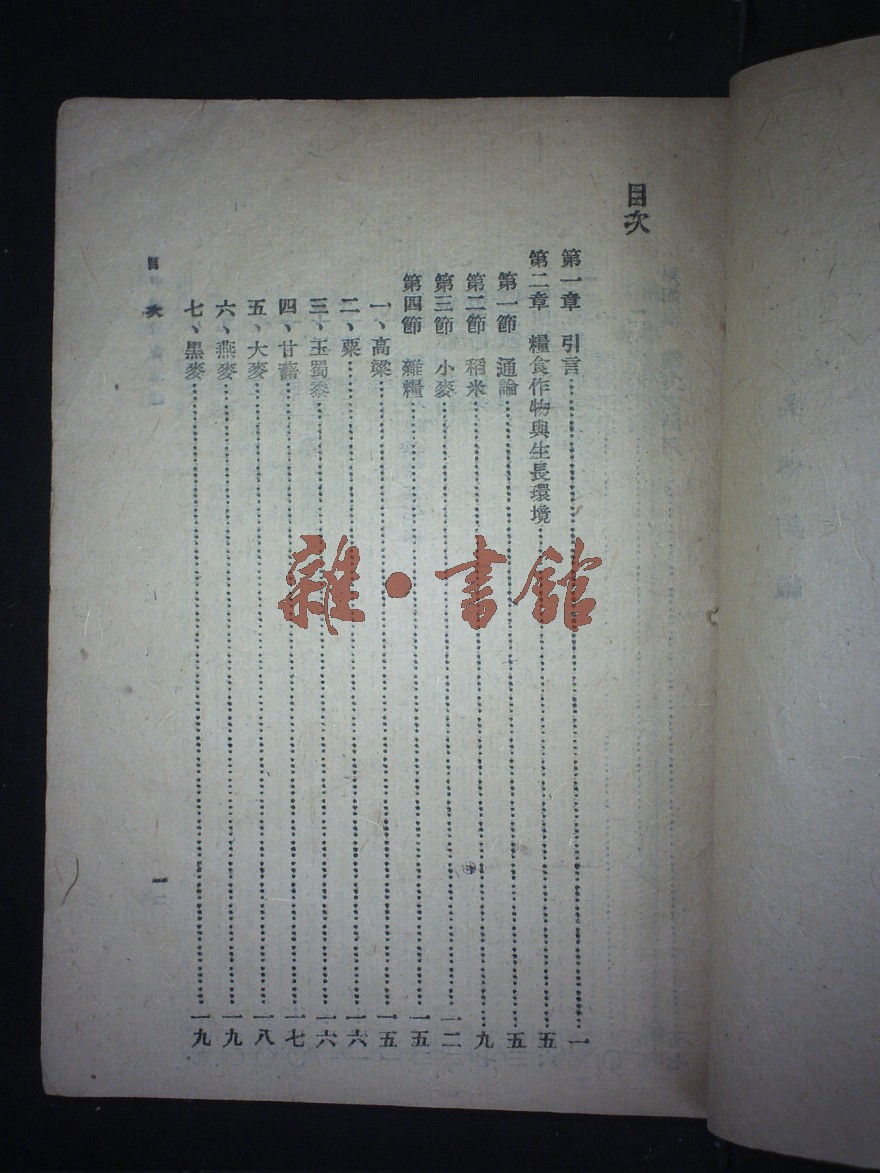 目次
第一章 引言……一
第二章 糧食作物與生長環境……五
第一節 通論……五
第二節 稻米……九
第三節 小麥……一二
第四節 雜糧……一五
一、高粱……一五
二、粟……一六
三、玉蜀黍……一六
四、甘藷……一七
五、大麥……一八
六、燕麥……一九
七、黑麥……一九
目次
一
雜·書館